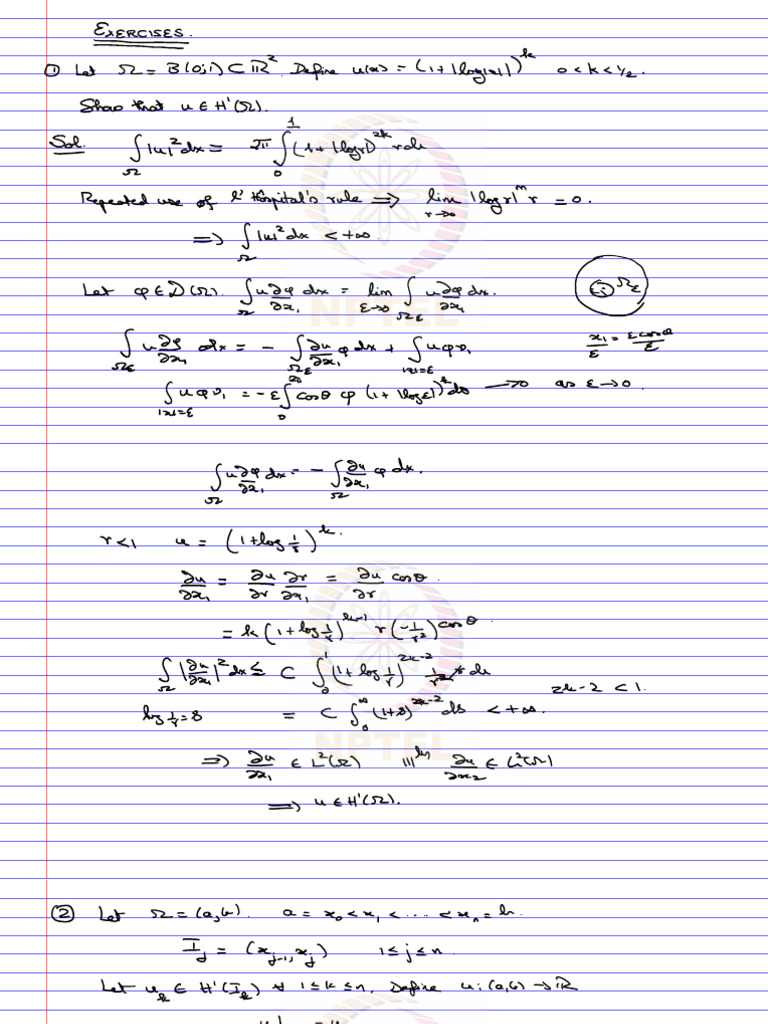 EXERCISES.
① Let Ω = B(0;1) ⊂ ℝ². Define u(x) = (1+|log|x||)^k 0<k<1/2.
Show that u ∈ H¹(Ω).
Sol. ∫_Ω |u|² dx = 2π ∫_0^1 (1+|log r|)^{2k} r dr
Repeated use of l'Hôpital's rule ⟹ lim_{r→0} |log r|^m r = 0.
⟹ ∫_Ω |u|² dx < +∞.
Let φ ∈ D(Ω). ∫_Ω u ∂φ/∂x₁ dx = lim_{ε→0} ∫_{Ω_ε} u ∂φ/∂x₁ dx. Ω_ε
∫_{Ω_ε} u ∂φ/∂x₁ dx = − ∫_{Ω_ε} ∂u/∂x₁ φ dx + ∫_{|x|=ε} u φ ν₁ x₁/ε = ε cosθ/ε
∫_{|x|=ε} u φ ν₁ = −ε ∫_0^{2π} cosθ φ (1+|log ε|)^k dθ → 0 as ε→0.
∫_Ω u ∂φ/∂x₁ dx = − ∫_Ω ∂u/∂x₁ φ dx.
r<1 u = (1+log 1/r)^k.
∂u/∂x₁ = ∂u/∂r ∂r/∂x₁ = ∂u/∂r cosθ.
= k (1+log 1/r)^{k-1} r (−1/r²) cosθ.
∫_Ω |∂u/∂x₁|² dx ≤ C ∫_0^1 (1+log 1/r)^{2k-2} 1/r² r dr
2k−2 < 1.
log 1/r = s = C ∫_0^∞ (1+s)^{2k-2} ds < +∞.
⟹ ∂u/∂x₁ ∈ L²(Ω) |||ly ∂u/∂x₂ ∈ L²(Ω)
⟹ u ∈ H¹(Ω).
② Let Ω = (a,b). a = x₀ < x₁ < .... < x_n = b.
I_j = (x_{j-1}, x_j) 1≤j≤n.
Let u_k ∈ H¹(I_k) ∀ 1≤k≤n. Define u: (a,b) → ℝ
NPTEL
NPTEL